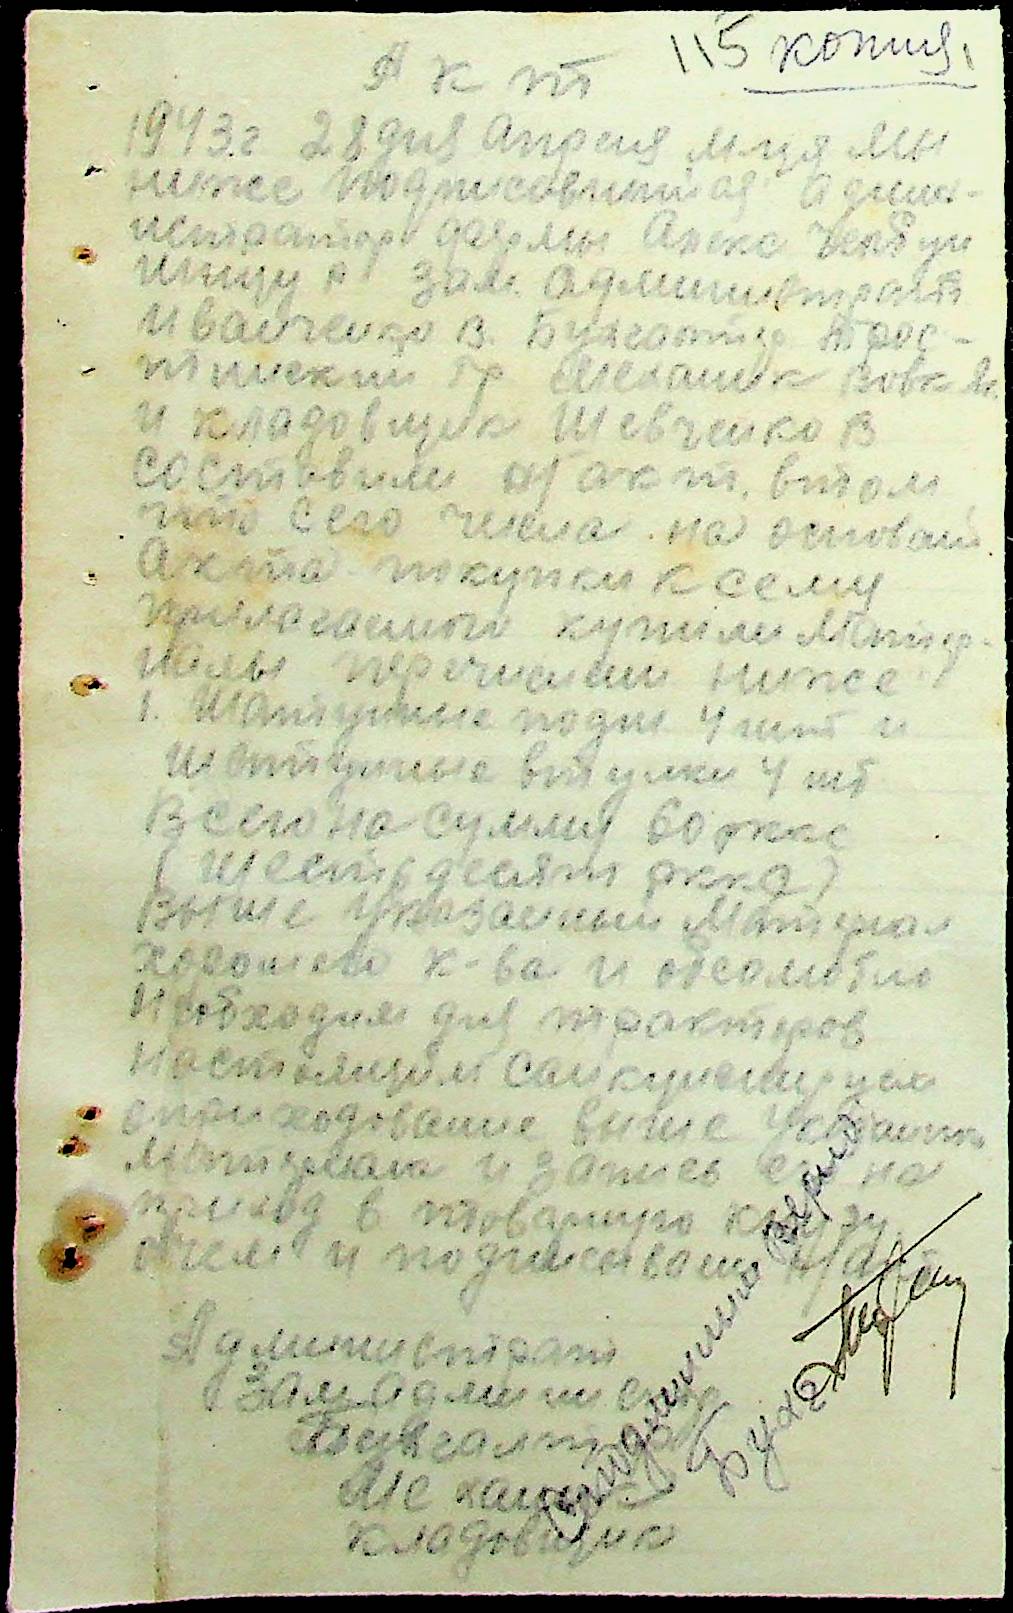 115 копия,
Акт
1943 г 28 дня Апреля м-ця мы
ниже подписавшийся Админ-
истратор фермы Алекс
зам. администрат
Иванченко В. Бухгалтер Трос-
тинский Гр Механик Вовк М.
и кладовщик Шевченко В
составили н/акт. втом
что сего числа на основан
Акта покупки к сему
прилагаемого купили Матер-
иалы перечислен ниже
1. Шатунные подш. 4 шт и
шатунные втулки 4 шт
Всего на сумму 60 рккс
(шестьдесят ркка)
Выше указанный Материал
хорошего к-ва и обсолютно
Необходим для тракторов
Настоящим санкционируем
оприходование выше указанного
Материала и запись его на
приход в товарную книгу
очем и подписываем н/акт
Администрат
Зам. Админист
Бухгалтер
Механик
Кладовщик
верно
Бухг